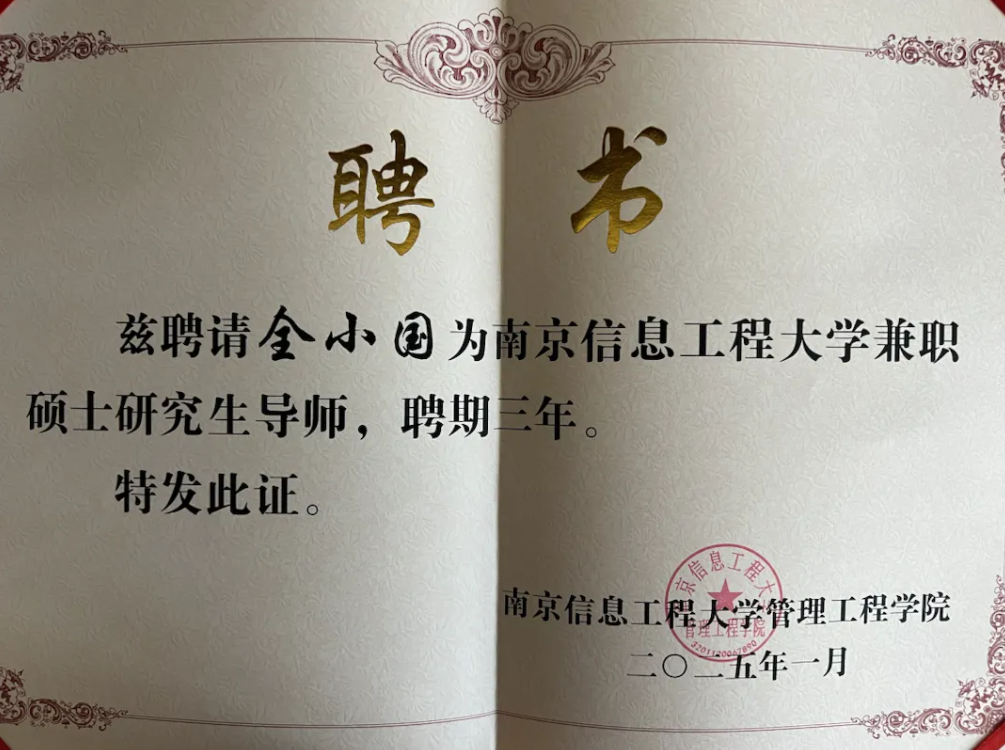 聘书
兹聘请全小国为南京信息工程大学兼职
硕士研究生导师，聘期三年。
特发此证。
南京信息工程大学管理工程学院
二〇二五年一月
京信息工程大
管理工程学院